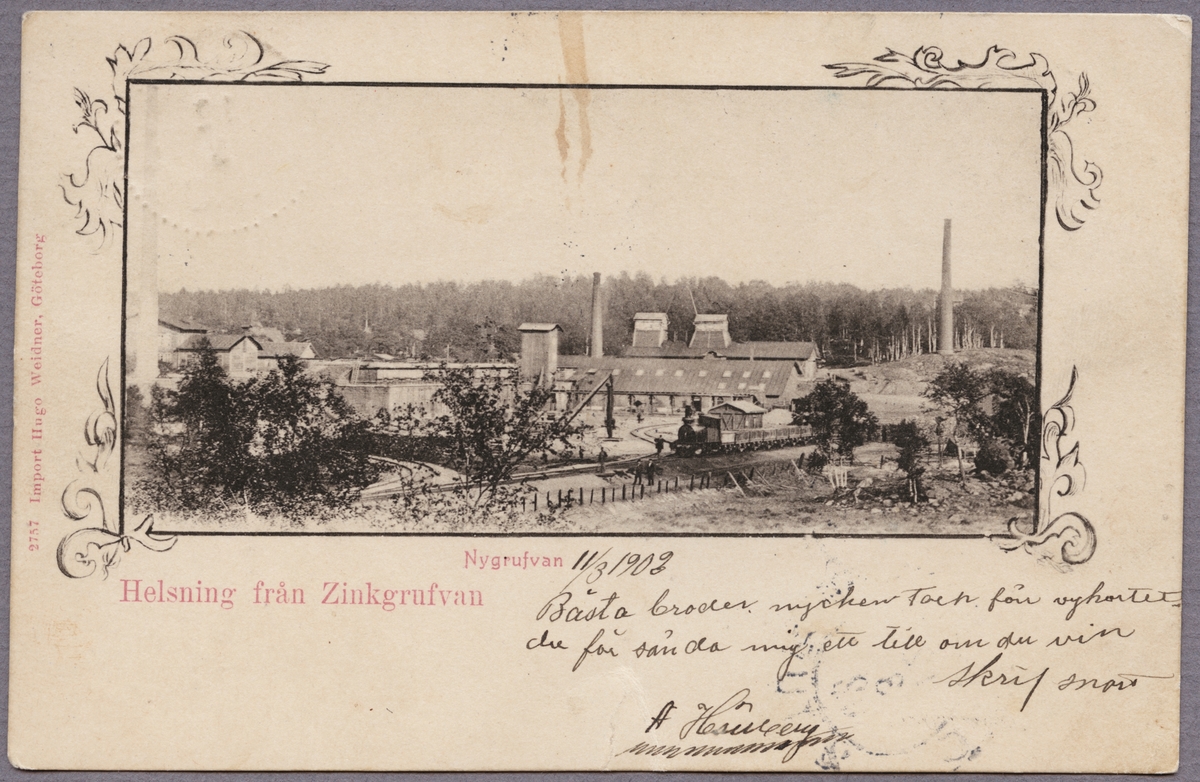 2757 Import Hugo Weidner, Göteborg
Nygrufvan 11/3 1902
Helsning från Zinkgrufvan
Bästa broder mycken tack för vykortet
du får sända mig ett till om du vin
Skrif snart
A